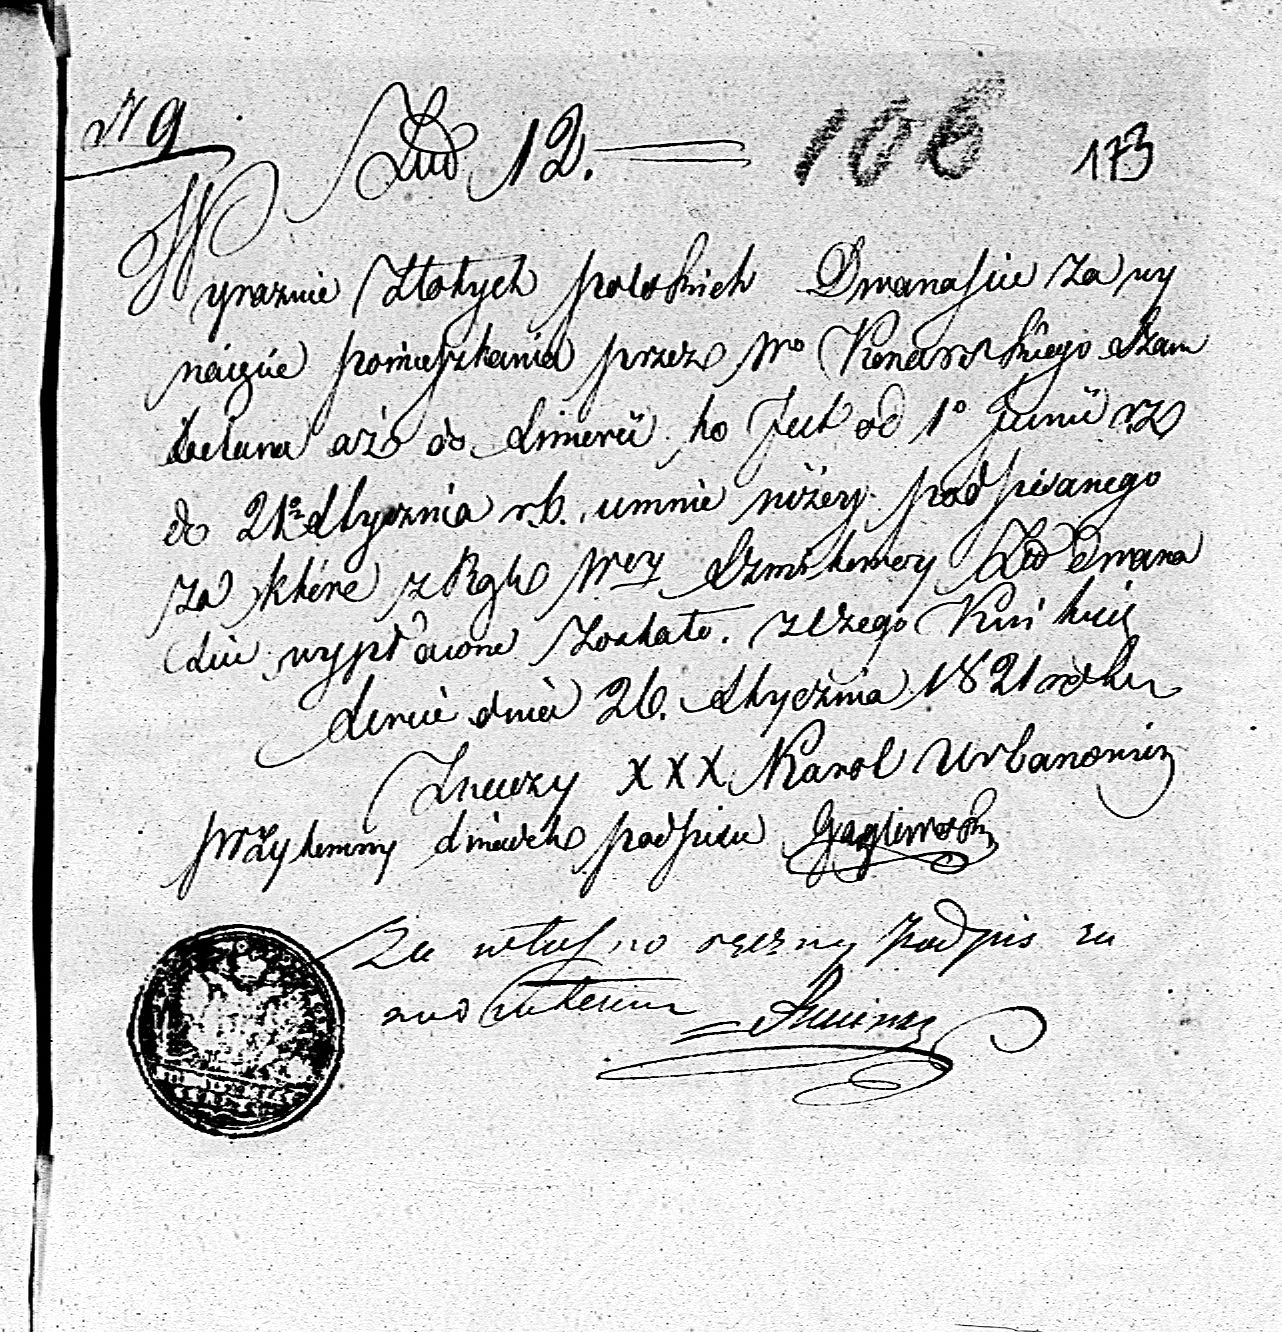 N 9 Złd 12. 106 173
Wyraznie Złotych polskich Dwanascie za wy
naięcie pomieszkania przez Wo Konarskiego Szam
belana aż do smierci to Jest od 1o Junii r. z.
do 21o Stycznia r. b. umnie niżey podpisanego
za które z Rąk Wey Dwana
scie wypłacone zostało. z czego Kwituię
dnia 26. Stycznia 1821 roku
Znaczy XXX Karol Urbanowicz
przytomny swiadek podpisu
Za własno ręczny podpis za